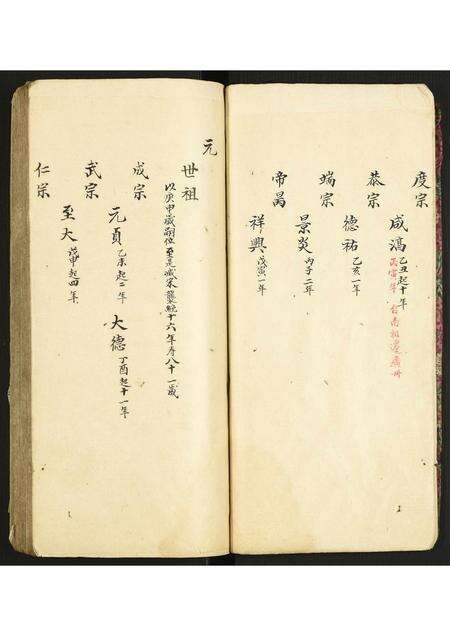 度宗
咸淳 乙丑起十年
恭宗
德祐 乙亥一年
端宗
景炎 丙子二年
帝昺
祥興 戊寅一年
元
世祖
以庚申歲嗣位至是滅宋襲統十六年壽八十一歲
成宗
元貞 乙未起二年 大德 丁酉起十一年
武宗
至大 戊申起四年
仁宗